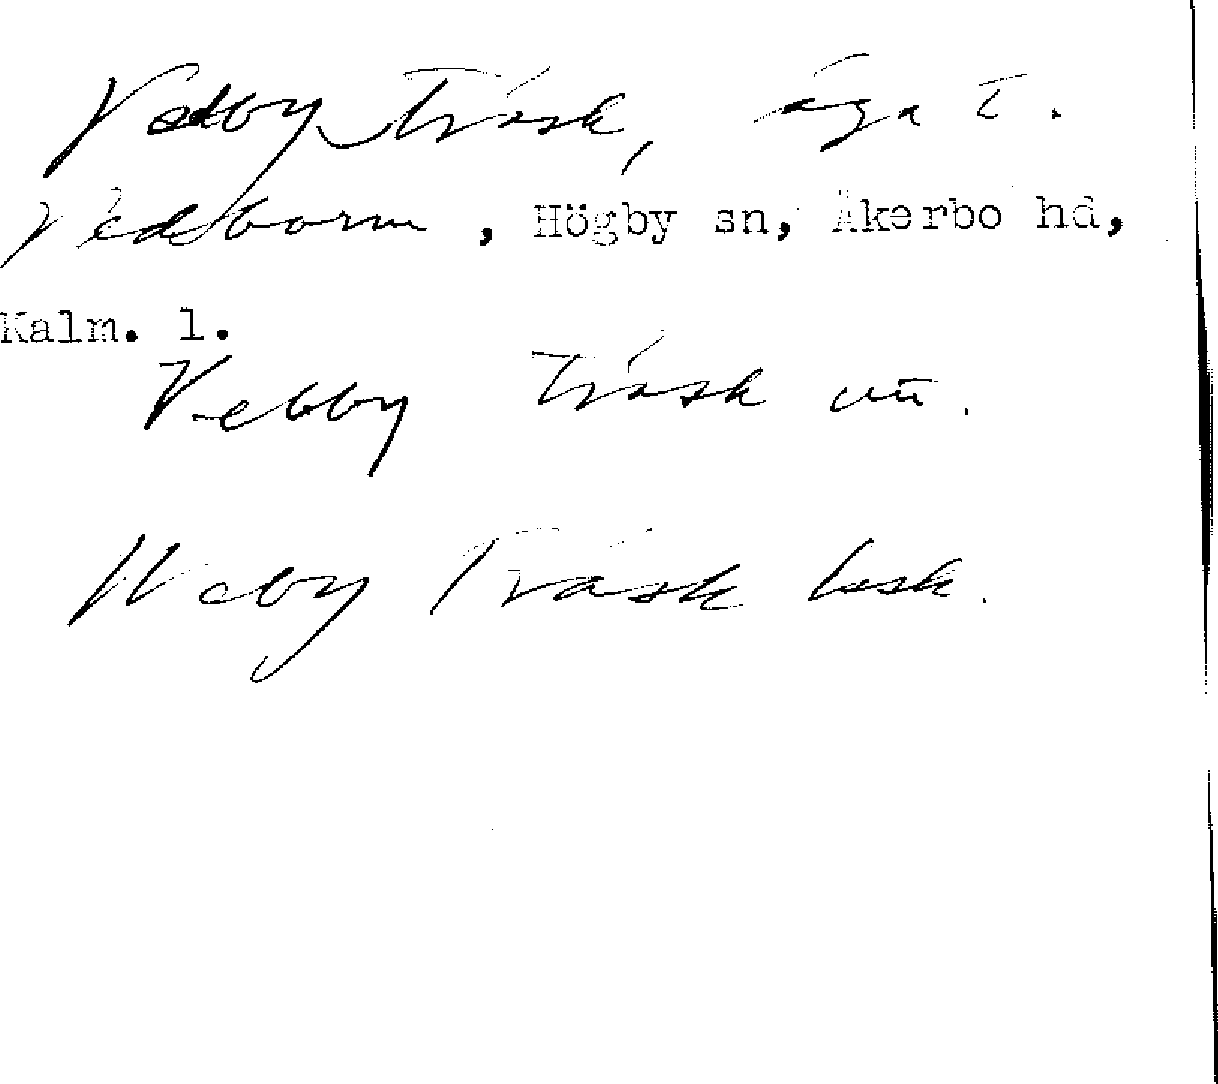 Vedby träsk, äga t.
Vedborm, Högby sn, Åkerbo hd,
Kalm. l.
Vebby Träsk
Weby Träsk